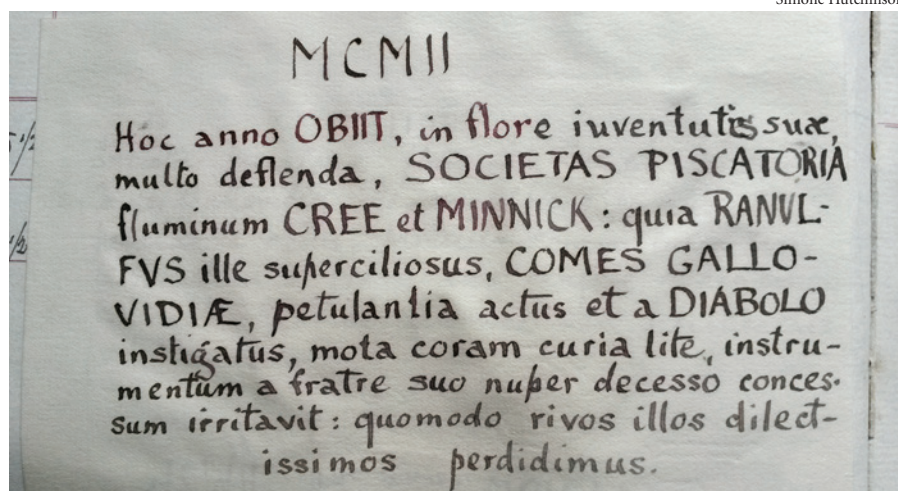 MCMII
Hoc anno OBIIT, in flore iuventutis suæ,
multo deflenda, SOCIETAS PISCATORIA
fluminum CREE et MINNICK: quia RANVL-
FVS ille superciliosus, COMES GALLO-
VIDIÆ, petulantia actus et a DIABOLO
instigatus, mota coram curia lite, instru-
mentum a fratre suo nuper decesso conces-
sum irritavit: quomodo rivos illos dilect-
issimos perdidimus.